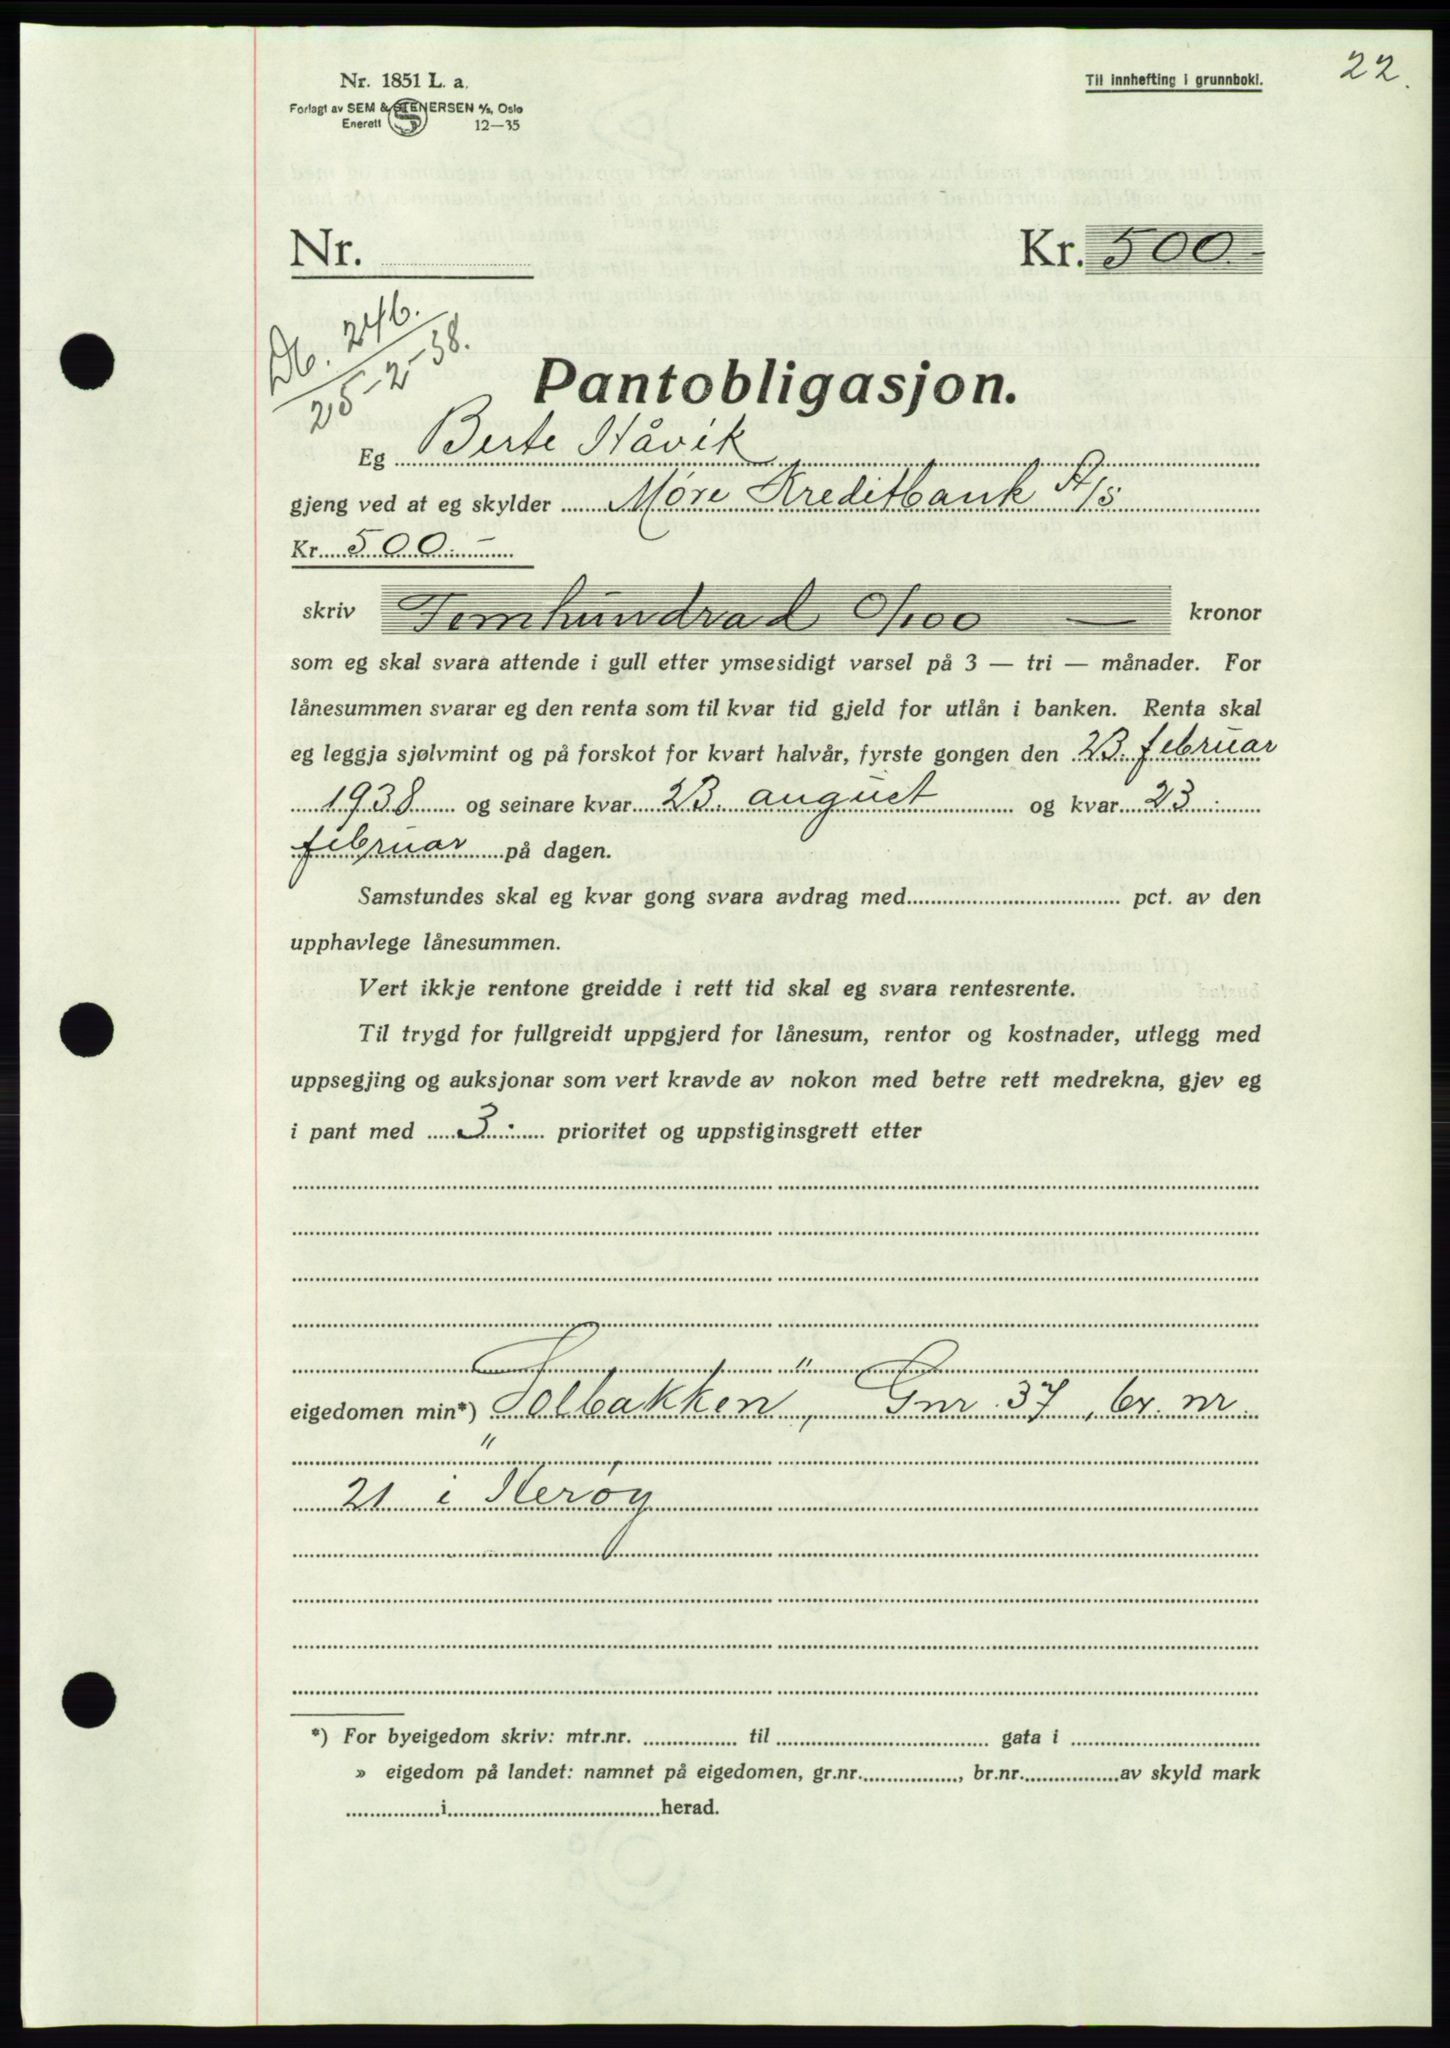 22.
Nr. 1851 L. a.
Til innhefting i grunnbokl.
Forlagt av SEM & STENERSEN A/S, Oslo
Enerett 12—35
Nr.
Kr. 500.-
Db. 246.
25-2-38.
Pantobligasjon.
Eg Berte Håvik
gjeng ved at eg skylder Møre Kreditbank A/S
Kr. 500.-
skriv Femhundrad 0/100 — kronor
som eg skal svara attende i gull etter ymsesidigt varsel på 3 — tri — månader. For
lånesummen svarar eg den renta som til kvar tid gjeld for utlån i banken. Renta skal
eg leggja sjølvmint og på forskot for kvart halvår, fyrste gongen den 23. februar
1938 og seinare kvar 23. august og kvar 23.
februar på dagen.
Samstundes skal eg kvar gong svara avdrag med pct. av den
upphavlege lånesummen.
Vert ikkje rentone greidde i rett tid skal eg svara rentesrente.
Til trygd for fullgreidt uppgjerd for lånesum, rentor og kostnader, utlegg med
uppsegjing og auksjonar som vert kravde av nokon med betre rett medrekna, gjev eg
i pant med 3. prioritet og uppstiginsgrett etter
eigedomen min*) "Solbakken", Gnr. 37, br. nr.
21 i Herøy
*) For byeigedom skriv: mtr.nr. til gata i
» eigedom på landet: namnet på eigedomen, gr.nr. , br.nr. av skyld mark
i herad.